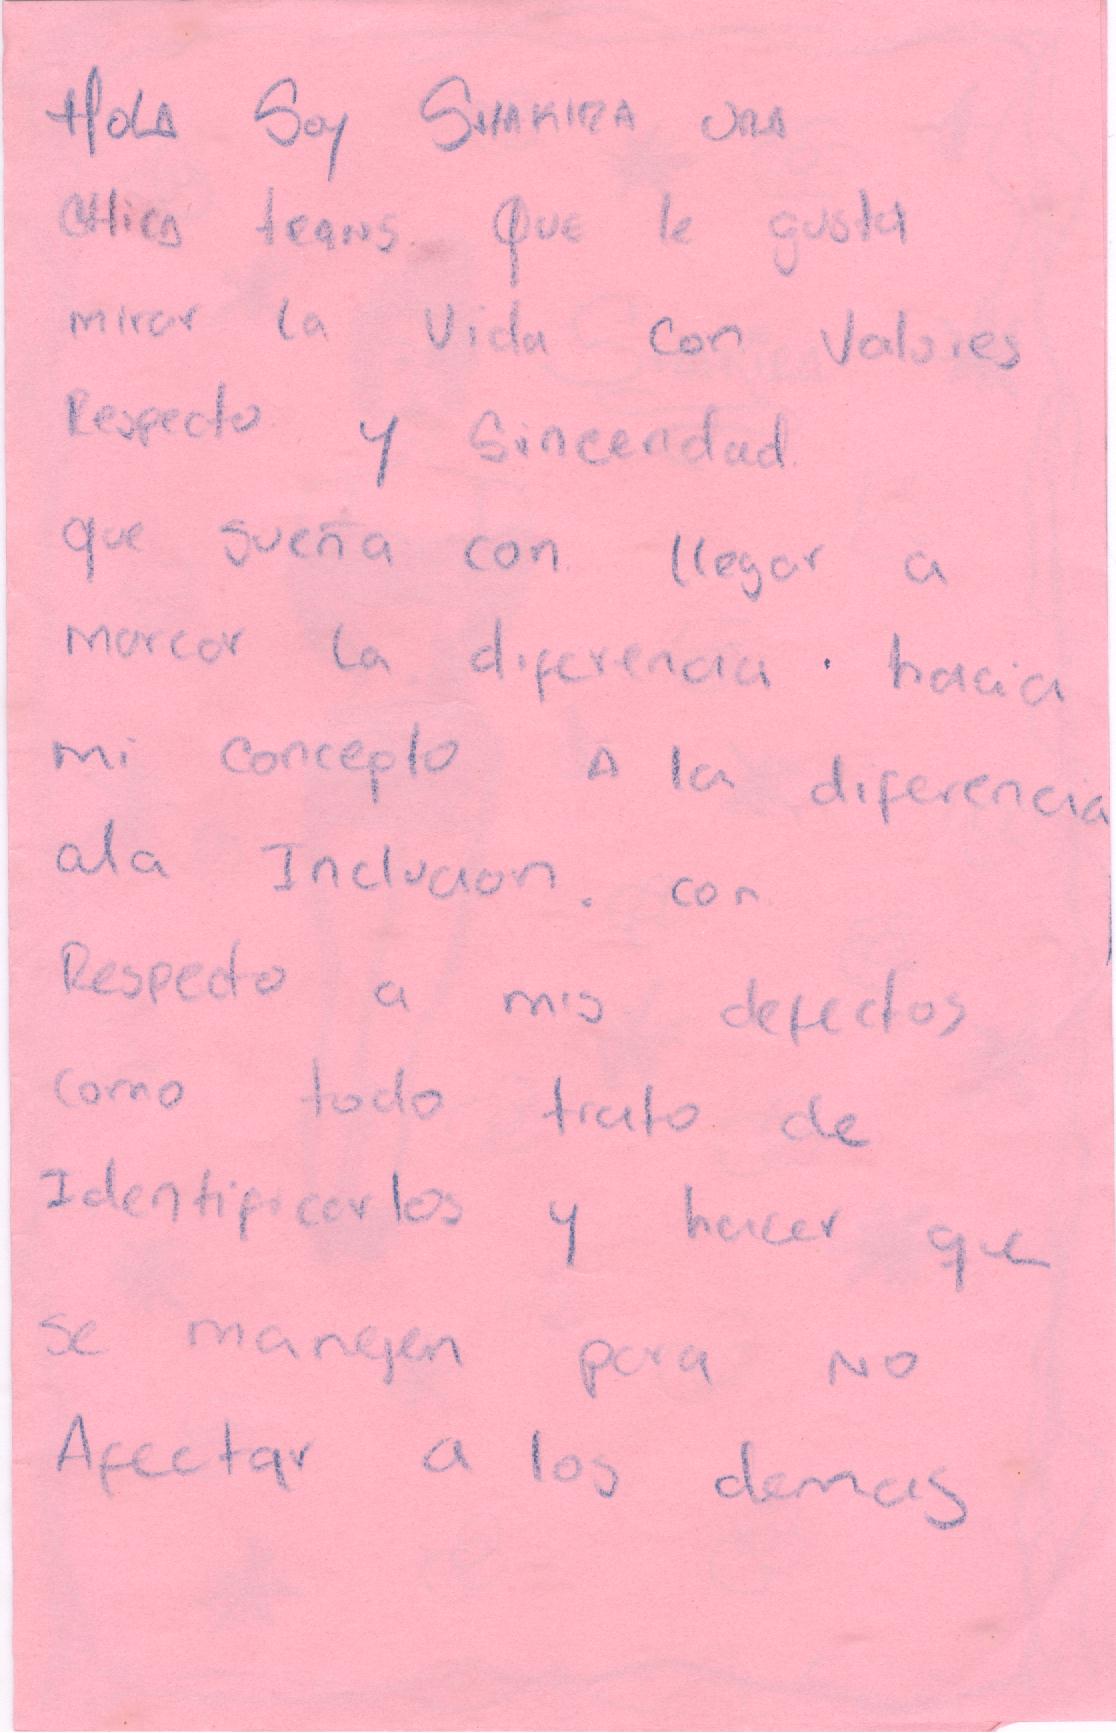 Hola Soy SHAKIRA UNA
CHica trans que le gusta
mirar la Vida con Valores
Respecto y Sinceridad
que sueña con llegar a
marcar la diferencia. hacia
mi concepto A la diferencia
ala Inclucion. con
Respecto a mis defectos
como todo trato de
Identificarlos y hacer que
se manejen para NO
Afectar a los demas